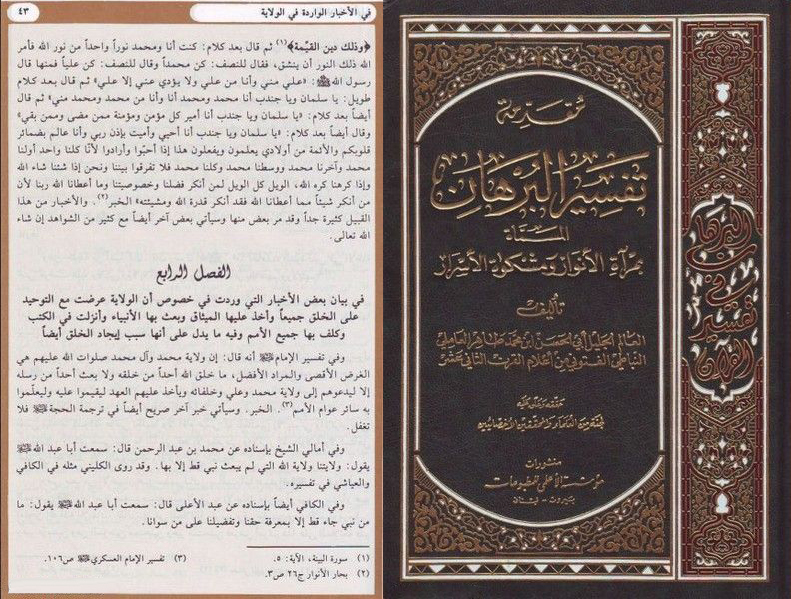 في الأخبار الواردة في الولاية
٤٣
﴿وذلك دين القيّمة﴾(١) ثم قال بعد كلام: كنت أنا ومحمد نوراً واحداً من نور الله فأمر
الله ذلك النور أن ينشق، فقال للنصف: كن محمداً وقال للنصف: كن علياً فمنها قال
رسول الله ﷺ: «علي مني وأنا من علي ولا يؤدي عني إلا علي» ثم قال بعد كلام
طويل: يا سلمان ويا جندب أنا محمد ومحمد أنا وأنا من محمد ومحمد مني» ثم قال
أيضاً بعد كلام: «يا سلمان ويا جندب أنا أمير كل مؤمن ومؤمنة ممن مضى وممن بقي»
وقال أيضاً بعد كلام: «يا سلمان ويا جندب أنا أحيي وأميت بإذن ربي وأنا عالم بضمائر
قلوبكم والأئمة من أولادي يعلمون ويفعلون هذا إذا أحبّوا وأرادوا لأنّا كلنا واحد أولنا
محمد وآخرنا محمد ووسطنا محمد وكلنا محمد فلا تفرقوا بيننا ونحن إذا شئنا شاء الله
وإذا كرهنا كره الله، الويل كل الويل لمن أنكر فضلنا وخصوصيتنا وما أعطانا الله ربنا لأن
من أنكر شيئاً مما أعطانا الله فقد أنكر قدرة الله ومشيئته» الخبر(٢). والأخبار من هذا
القبيل كثيرة جداً وقد مر بعض منها وسيأتي بعض آخر أيضاً مع كثير من الشواهد إن شاء
الله تعالى.
الفصل الرابع
في بيان بعض الأخبار التي وردت في خصوص أن الولاية عرضت مع التوحيد
على الخلق جميعاً وأخذ عليها الميثاق وبعث بها الأنبياء وأنزلت في الكتب
وكلف بها جميع الأمم وفيه ما يدل على أنها سبب إيجاد الخلق أيضاً
وفي تفسير الإمام عليه السلام أنه قال: إن ولاية محمد وآل محمد صلوات الله عليهم هي
الغرض الأقصى والمراد الأفضل، ما خلق الله أحداً من خلقه ولا بعث أحداً من رسله
إلا ليدعوهم إلى ولاية محمد وعلي وخلفائه ويأخذ عليهم العهد ليقيموا عليه وليعلّموا
به سائر عوام الأمم(٣). الخبر. وسيأتي خبر آخر صريح أيضاً في ترجمة الحجة عليه السلام فلا
تغفل.
وفي أمالي الشيخ بإسناده عن محمد بن عبد الرحمن قال: سمعت أبا عبد الله عليه السلام
يقول: ولايتنا ولاية الله التي لم يبعث نبي قط إلا بها. وقد روى الكليني مثله في الكافي
والعياشي في تفسيره.
وفي الكافي أيضاً بإسناده عن عبد الأعلى قال: سمعت أبا عبد الله عليه السلام يقول: ما
من نبي جاء قط إلا بمعرفة حقنا وتفضيلنا على من سوانا.
(١) سورة البينة، الآية: ٥.
(٣) تفسير الإمام العسكري عليه السلام ص١٠٦.
(٢) بحار الأنوار ج٢٦ ص٣.
مقدمة
تفسير البرهان
المسماة
بمرآة الأنوار ومشكوة الأسرار
تأليف
العالم الجليل أبي الحسن ابن محمد طاهر العاملي
النباطي الفتوني من أعلام القرن الثاني عشر
حققه وعلق عليه
لجنة من العلماء والمحققين الأخصائيين
منشورات
مؤسسة الأعلمي للمطبوعات
بيروت - لبنان
البرهان
في
تفسير
القرآن